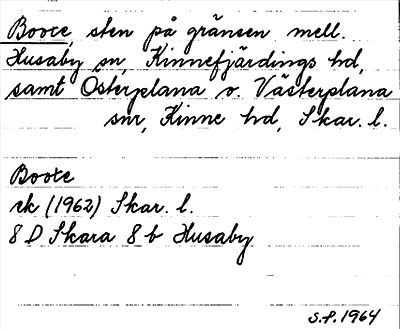 Boote, sten på gränsen mell.
Husaby sn, Kinnefjärdings hd,
samt Österplana o. Västerplana
snr, Kinne hd, Skar. l.
Boote
rk (1962) Skar. l.
8 D Skara 8 b Husaby
S.F. 1964